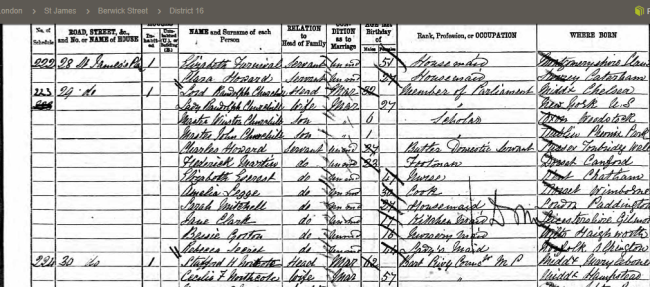 London > St James > Berwick Street > District 16
No. of Schedule ROAD, STREET, &c., and No. or NAME of HOUSE HOUSES NAME and Surname of each Person RELATION to Head of Family CONDITION as to Marriage AGE last Birthday of Rank, Profession, or OCCUPATION WHERE BORN
Males Females
222 28 St James's Pl 1 Elizabeth Servant Unmd 51 Housemaid Montgomeryshire
Clara Hosard Servant Unmd 27 Housemaid Surrey Caterham
223 29 do 1 Lord Randolph Churchill Head Mar 32 Member of Parliament Midd Chelsea
Lady Randolph Churchill Wife Mar 27 " New York U S
Master Winston Churchill Son 6 Scholar Oxon Woodstock
Master John Churchill Son 1 Dublin Phoenix Park
Charles Hosard Servant Unmd 27 Butler Domestic Servant Sussex Tonbridge Wells
Frederick Martin do Unmd 23 Footman Dorset Canford
Elizabeth Everest do Unmd Nurse Kent Chatham
Amelia Legge do Unmd Cook Dorset Wimborne
Sarah Mitchell do Unmd Housemaid London Paddington
Jane Clark do Unmd Kitchen Maid Leicestershire
Bessie Boston do Unmd Nursery Maid Haighworth
Rebecca do Unmd Lady's Maid Norfolk
224 30 do 1 Stafford H Northcote Head Mar 62 Bart Privy Counr M P Midd Marylebone
Cecilia F Northcote Wife Mar 57 " Midd Hampstead